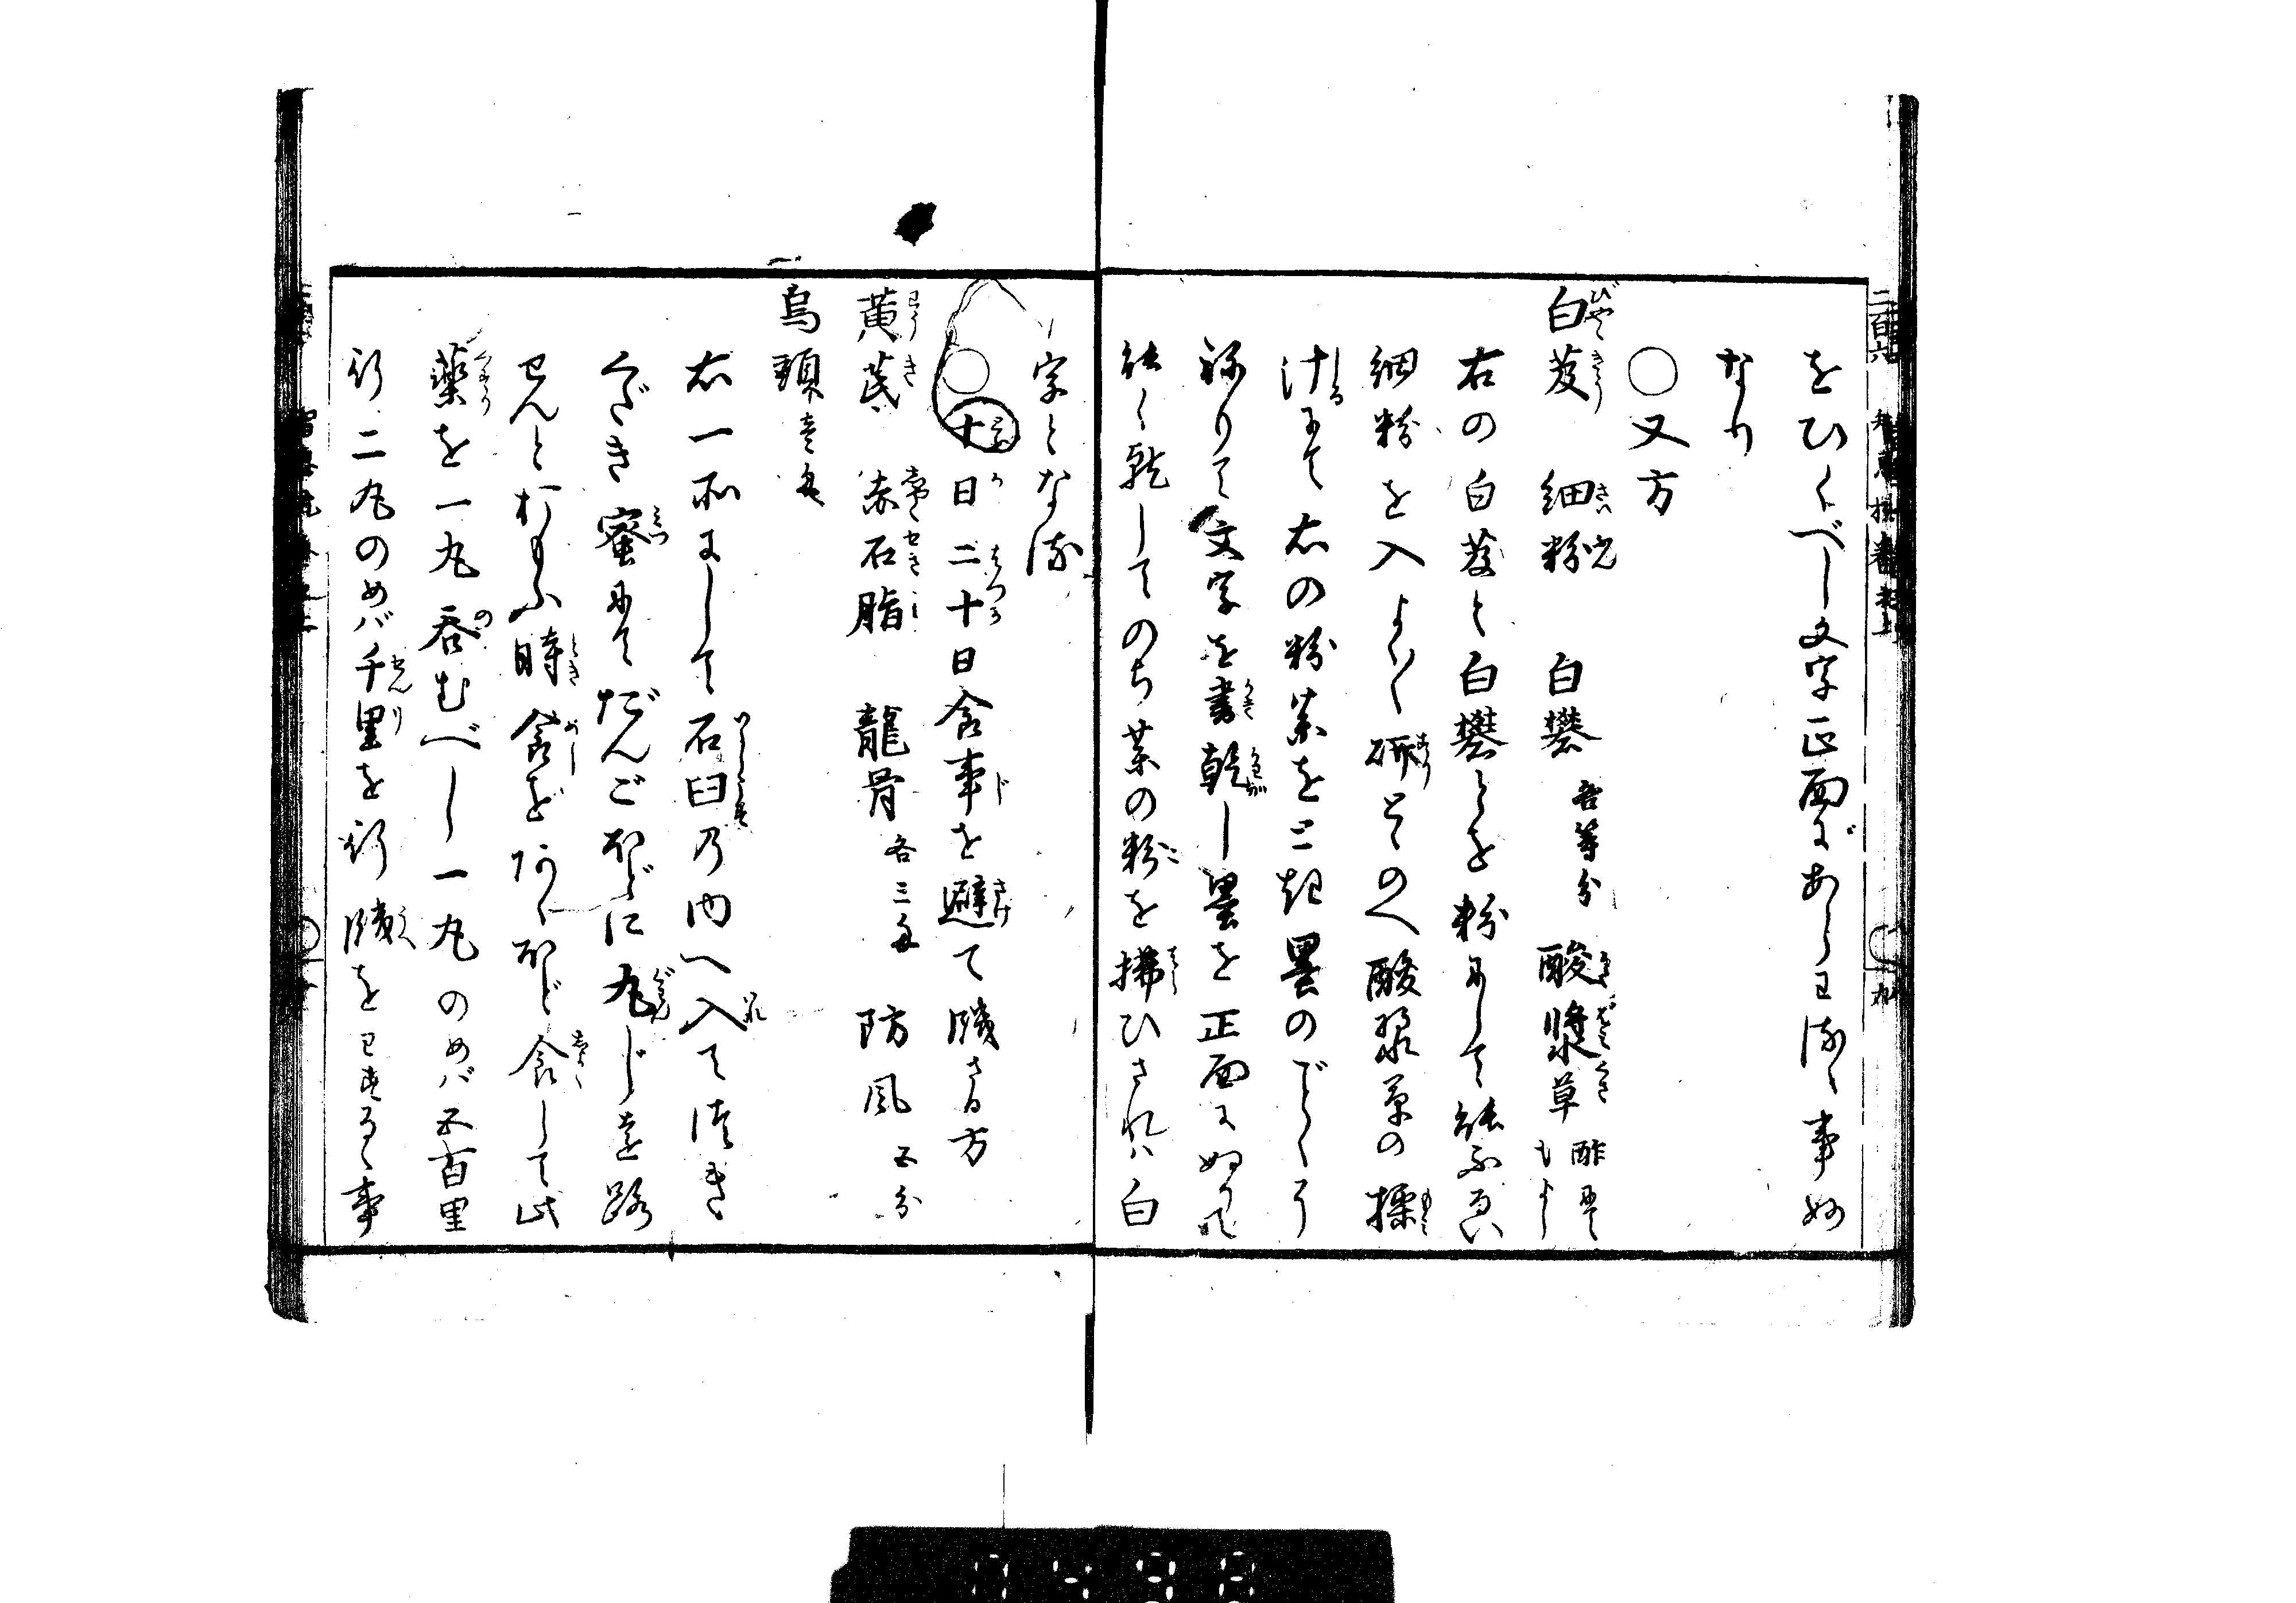 をひくべし文字正面にあらわるゝ事妙
なり
○又方
白芨 細粉 白礬 各等分 酸漿草 酢にて もよし
右の白芨と白礬とを粉にして能ふるい
細粉を入よく〳〵研とゝのへ酸漿草の揉
汁にて右の粉薬をこね墨のごとくう
ねりて文字を書乾し墨を正面にぬりて
能く乾してのち葉の粉を拂ひされハ白
字となる
○十日二十日食事を避て餓さる方
黄芪 赤石脂 龍骨 各三匁 防風 五分
烏頭 壱匁
右一所にして石臼乃内へ入てつき
くだき蜜にてだんごほどに丸じを路
せんとおもふ時食をあくほど食して此
薬を一丸呑むべし一丸のめバ五百里
行二丸のめバ千里を行餓をわするゝ事